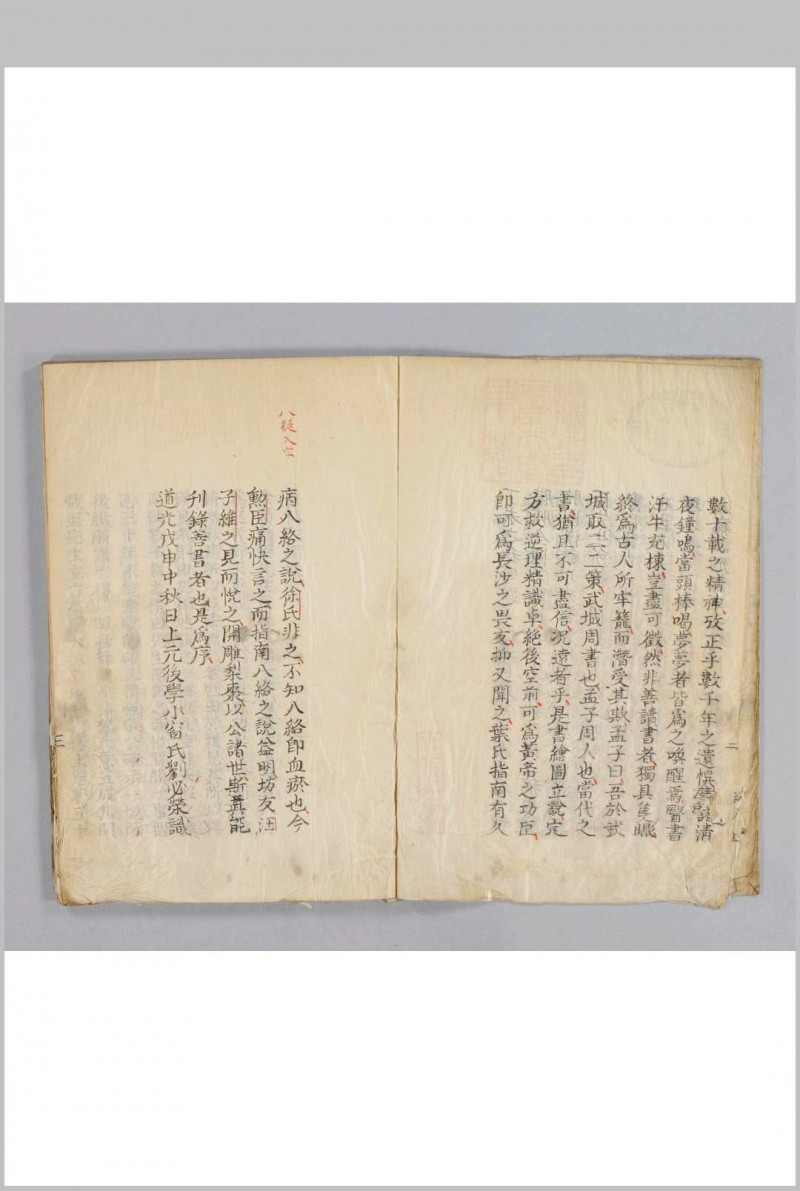 數十載之精神攷正乎數千年之遺悞譬諸清
夜鐘鳴當頭棒喝夢夢者皆爲之喚醒焉醫書
汗牛充棟豈盡可徵然非善讀書者獨具隻眼
終爲古人所牢籠而潛受其欺孟子曰吾於武
城取二三策武城周書也孟子周人也當代之
書猶且不可盡信况遠者乎是書繪圖立說定
方救逆理精識卓絕後空前可爲黃帝之功臣
即可爲長沙之畏友抑又聞之葉氏指南有久
二
病入絡之說徐氏非之不知入絡即血瘀也今
勲臣痛快言之而指南入絡之說益明坊友汪
子維之見而悅之開雕梨棗以公諸世斯真能
刊錄善書者也是爲序
道光戊申中秋日上元後學小窗氏劉必榮識
三